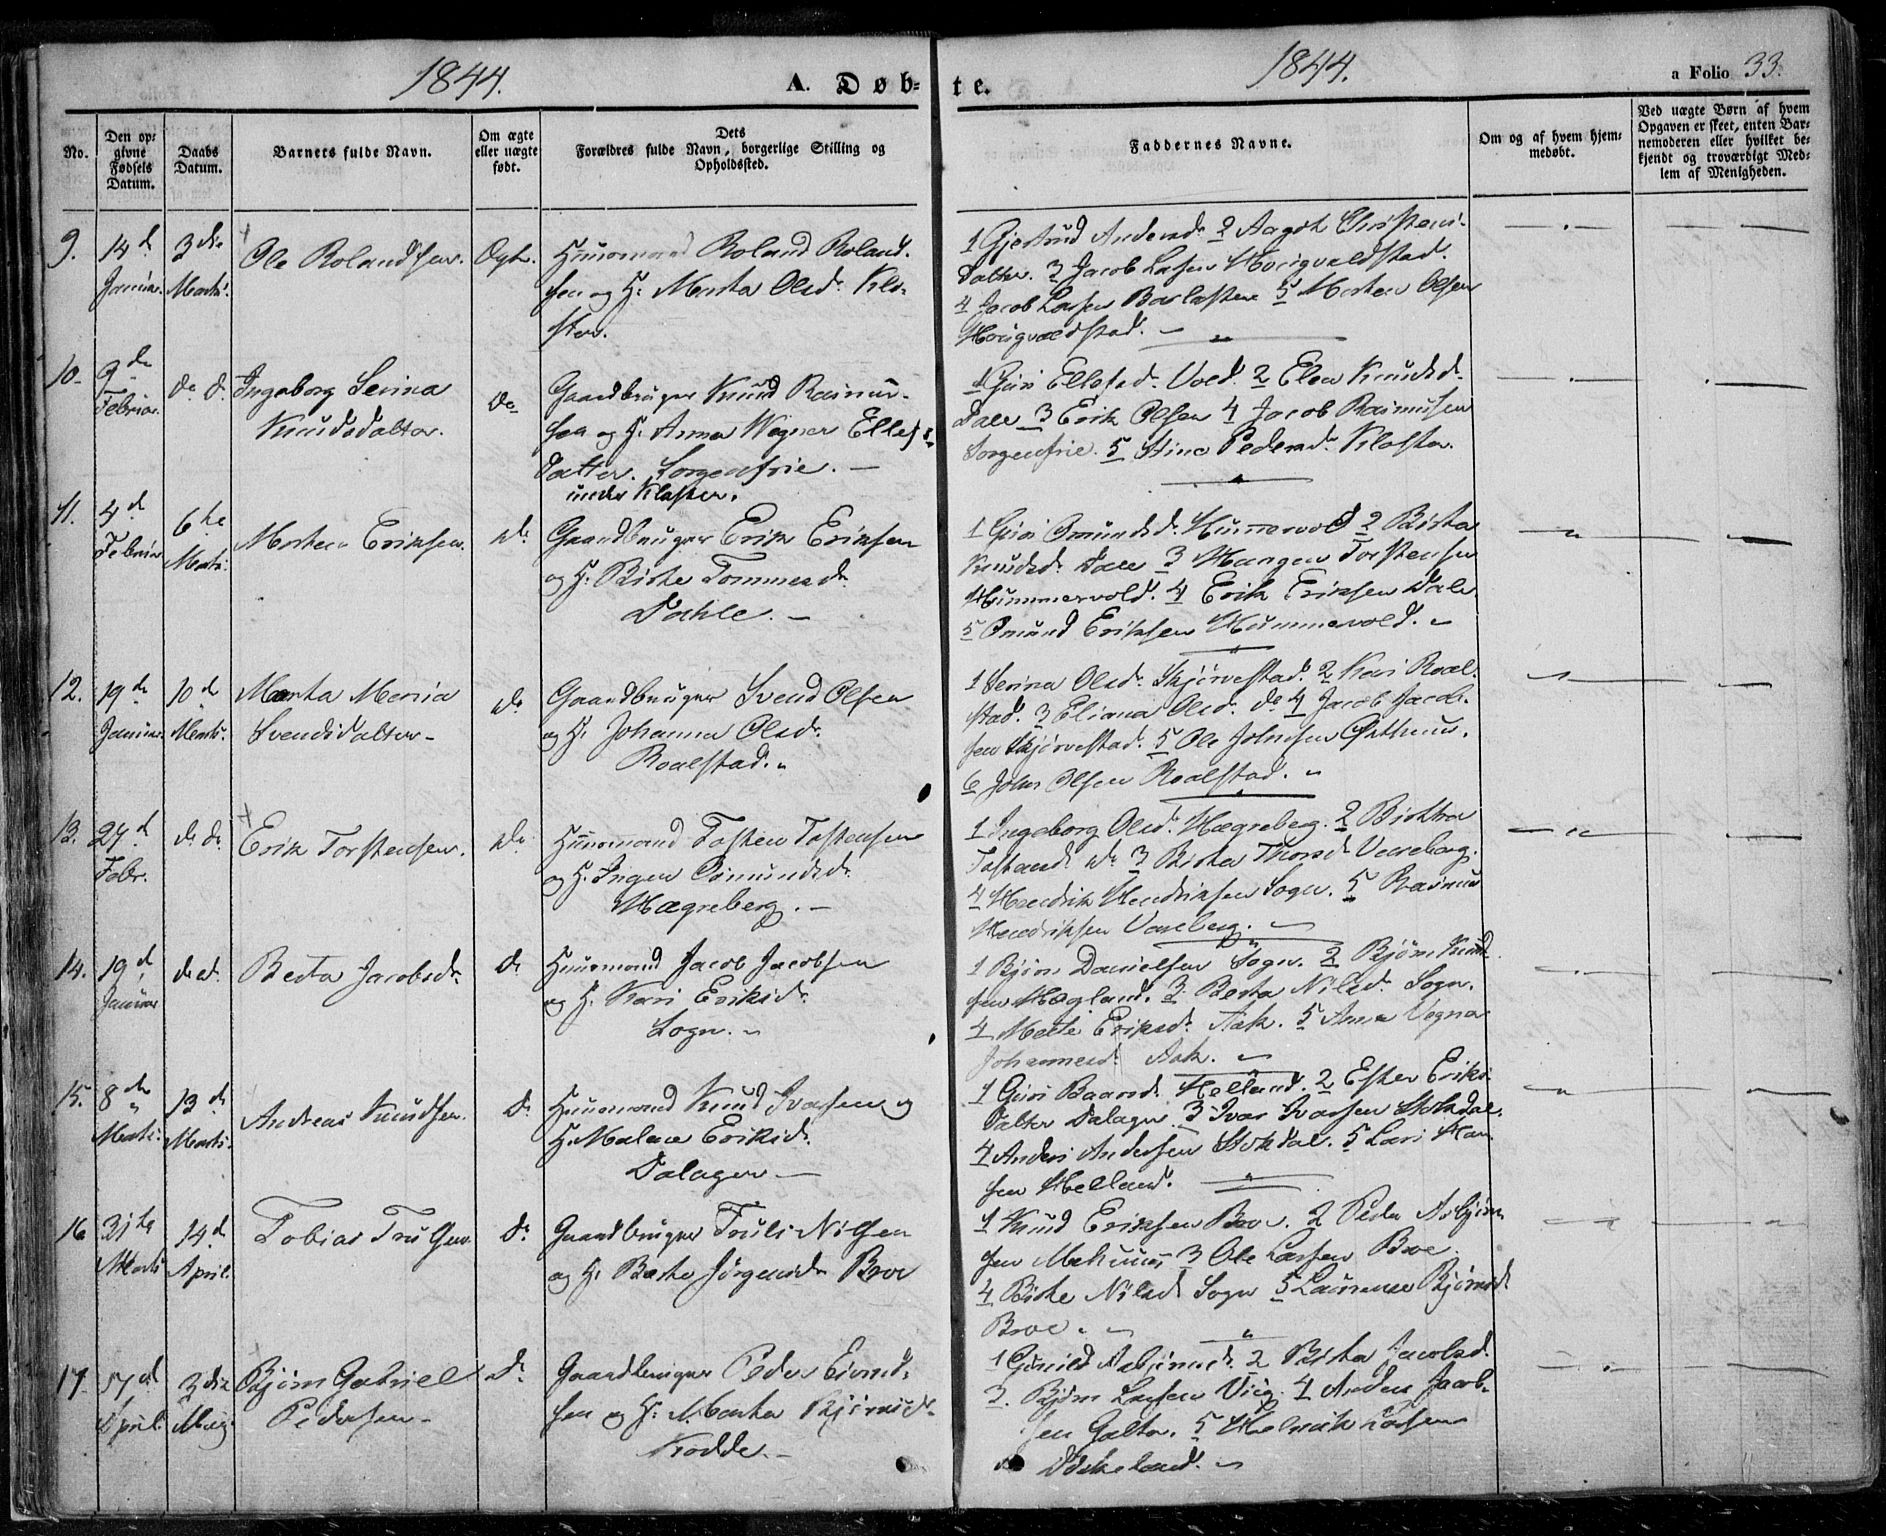 1844.
A. Døb-
te.
1844.
a Folio 33.
No.
Den op-
givne
Fødsels
Datum.
Daabs
Datum.
Barnets fulde Navn.
Om ægte
eller uægte
født.
Dets
Forældres fulde Navn, borgerlige Stilling og
Opholdssted.
Faddernes Navne.
Om og af hvem hjem-
medøbt.
Ved uægte Børn af hvem
Opgaven er skeet, enten Bar-
nemoderen eller hvilket be-
kjendt og troværdigt Med-
lem af Menigheden.
9.
14d
Januar.
3die
Marts.
Ole Rolandsen.
Ægte.
Huusmand Roland Roland-
sen og H. Marta Olsd. Klo-
ster.
1 Gjertrud Andersd. 2 Aagot Christens-
datter. 3 Jacob Larsen Hougvaldstad.
4 Jacob Larsen 5 Morten Olsen
Hougvaldstad.
10.
9de
Februar.
do do
Ingeborg Serina
Knudsdatter.
do
Gaardbruger Knud Rasmus-
sen og H. Anna Wegner Ellefs-
datter. Sorgenfrie.
under Kloster.
1 Guri Vold. 2 Elen Knudsd.
Dale 3 Erik Olsen 4 Jacob Rasmusen
Sorgenfrie. 5 Stine Pedersd. Kloster.
11.
4d
Februar
6te
Marts.
Morten Eriksen.
do
Gaardbruger Erik Eriksen
og H. Birte Tommesd.
Dahle.
1 Guri Omundsd. Hummervold 2 Birta
Knudsd. Dale 3 Torstensen
Hummervold. 4 Erik Eriksen Dale
5 Omund Eriksen Hummervold.
12.
19de
Januar.
10d
Marts.
Marta Maria
Svendsdatter
do
Gaardbruger Svend Olsen
og H. Johanna Olsd.
Roalstad.
1 Serina Olsd. Skjørvestad. 2 Kari Roal-
stad. 3 Eliana Olsd. do 4 Jacob Jacob-
sen Skjørvestad. 5 Ole Johnsen Østhuus.
6 John Olsen Roalstad.
13.
27d
Febr.
do do
Erik Torstensen.
do
Huusmand Tosten Tostensen
og H. Inger Omundsd.
Hægreberg.
1 Ingeborg Olsd. Hægreberg. 2 Birthe
Tostensd. do 3 Birta Thorsd. Vareberg.
4 Hendrik Hendriksen Sogn. 5 Rasmus
Hendriksen Vareberg.
14.
19d
Januar
do do
Berta Jacobsd.
do
Huusmand Jacob Jacobsen
og H. Kari Eriksd.
Sogn.
1 Bjørn Danielsen Sogn. 2 Bjørn Knud-
sen Hægland. 3 Berta Nilsd. Sogn.
4 Marte Eriksd. Aak. 5 Anna Vegna
Johannesd. Aak.
15.
8de
Marts.
13d
Marts.
Andreas Knudsen.
do
Huusmand Knud Ivarsen og
H. Malene Eriksd.
Dalager
1 Guri Baardsd. Helland. 2 Ester Eriks-
datter Dalager. 3 Ivar Ivarsen Stokdal.
4 Anders Andersen Stokdal. 5 Lars Han-
sen Helland.
16
31te
Marts
14d
April.
Tobias Trulsen
do
Gaardbruger Truls Nilsen
og H. Berte Jørgensd. Broe
1 Knud Eriksen Broe. 2 Peder Asbjørn-
sen 3 Ole Larsen Broe.
4 Birte Nilsd. Sogn 5 Laurense Bjørnsd.
Broe.
17.
April
3die
Maj.
Bjørn Gabriel
Pedersen
do
Gaardbruger Peder Eivind-
sen og H. Marta Bjørnsd.
Nodde.
1 Gunild Asbjørnsd. 2 Birta Jacobsd.
3. Bjørn Larsen Viig. 4 Anders Jacob-
sen Galta. 5 Helmik Larsen
Dskeland.